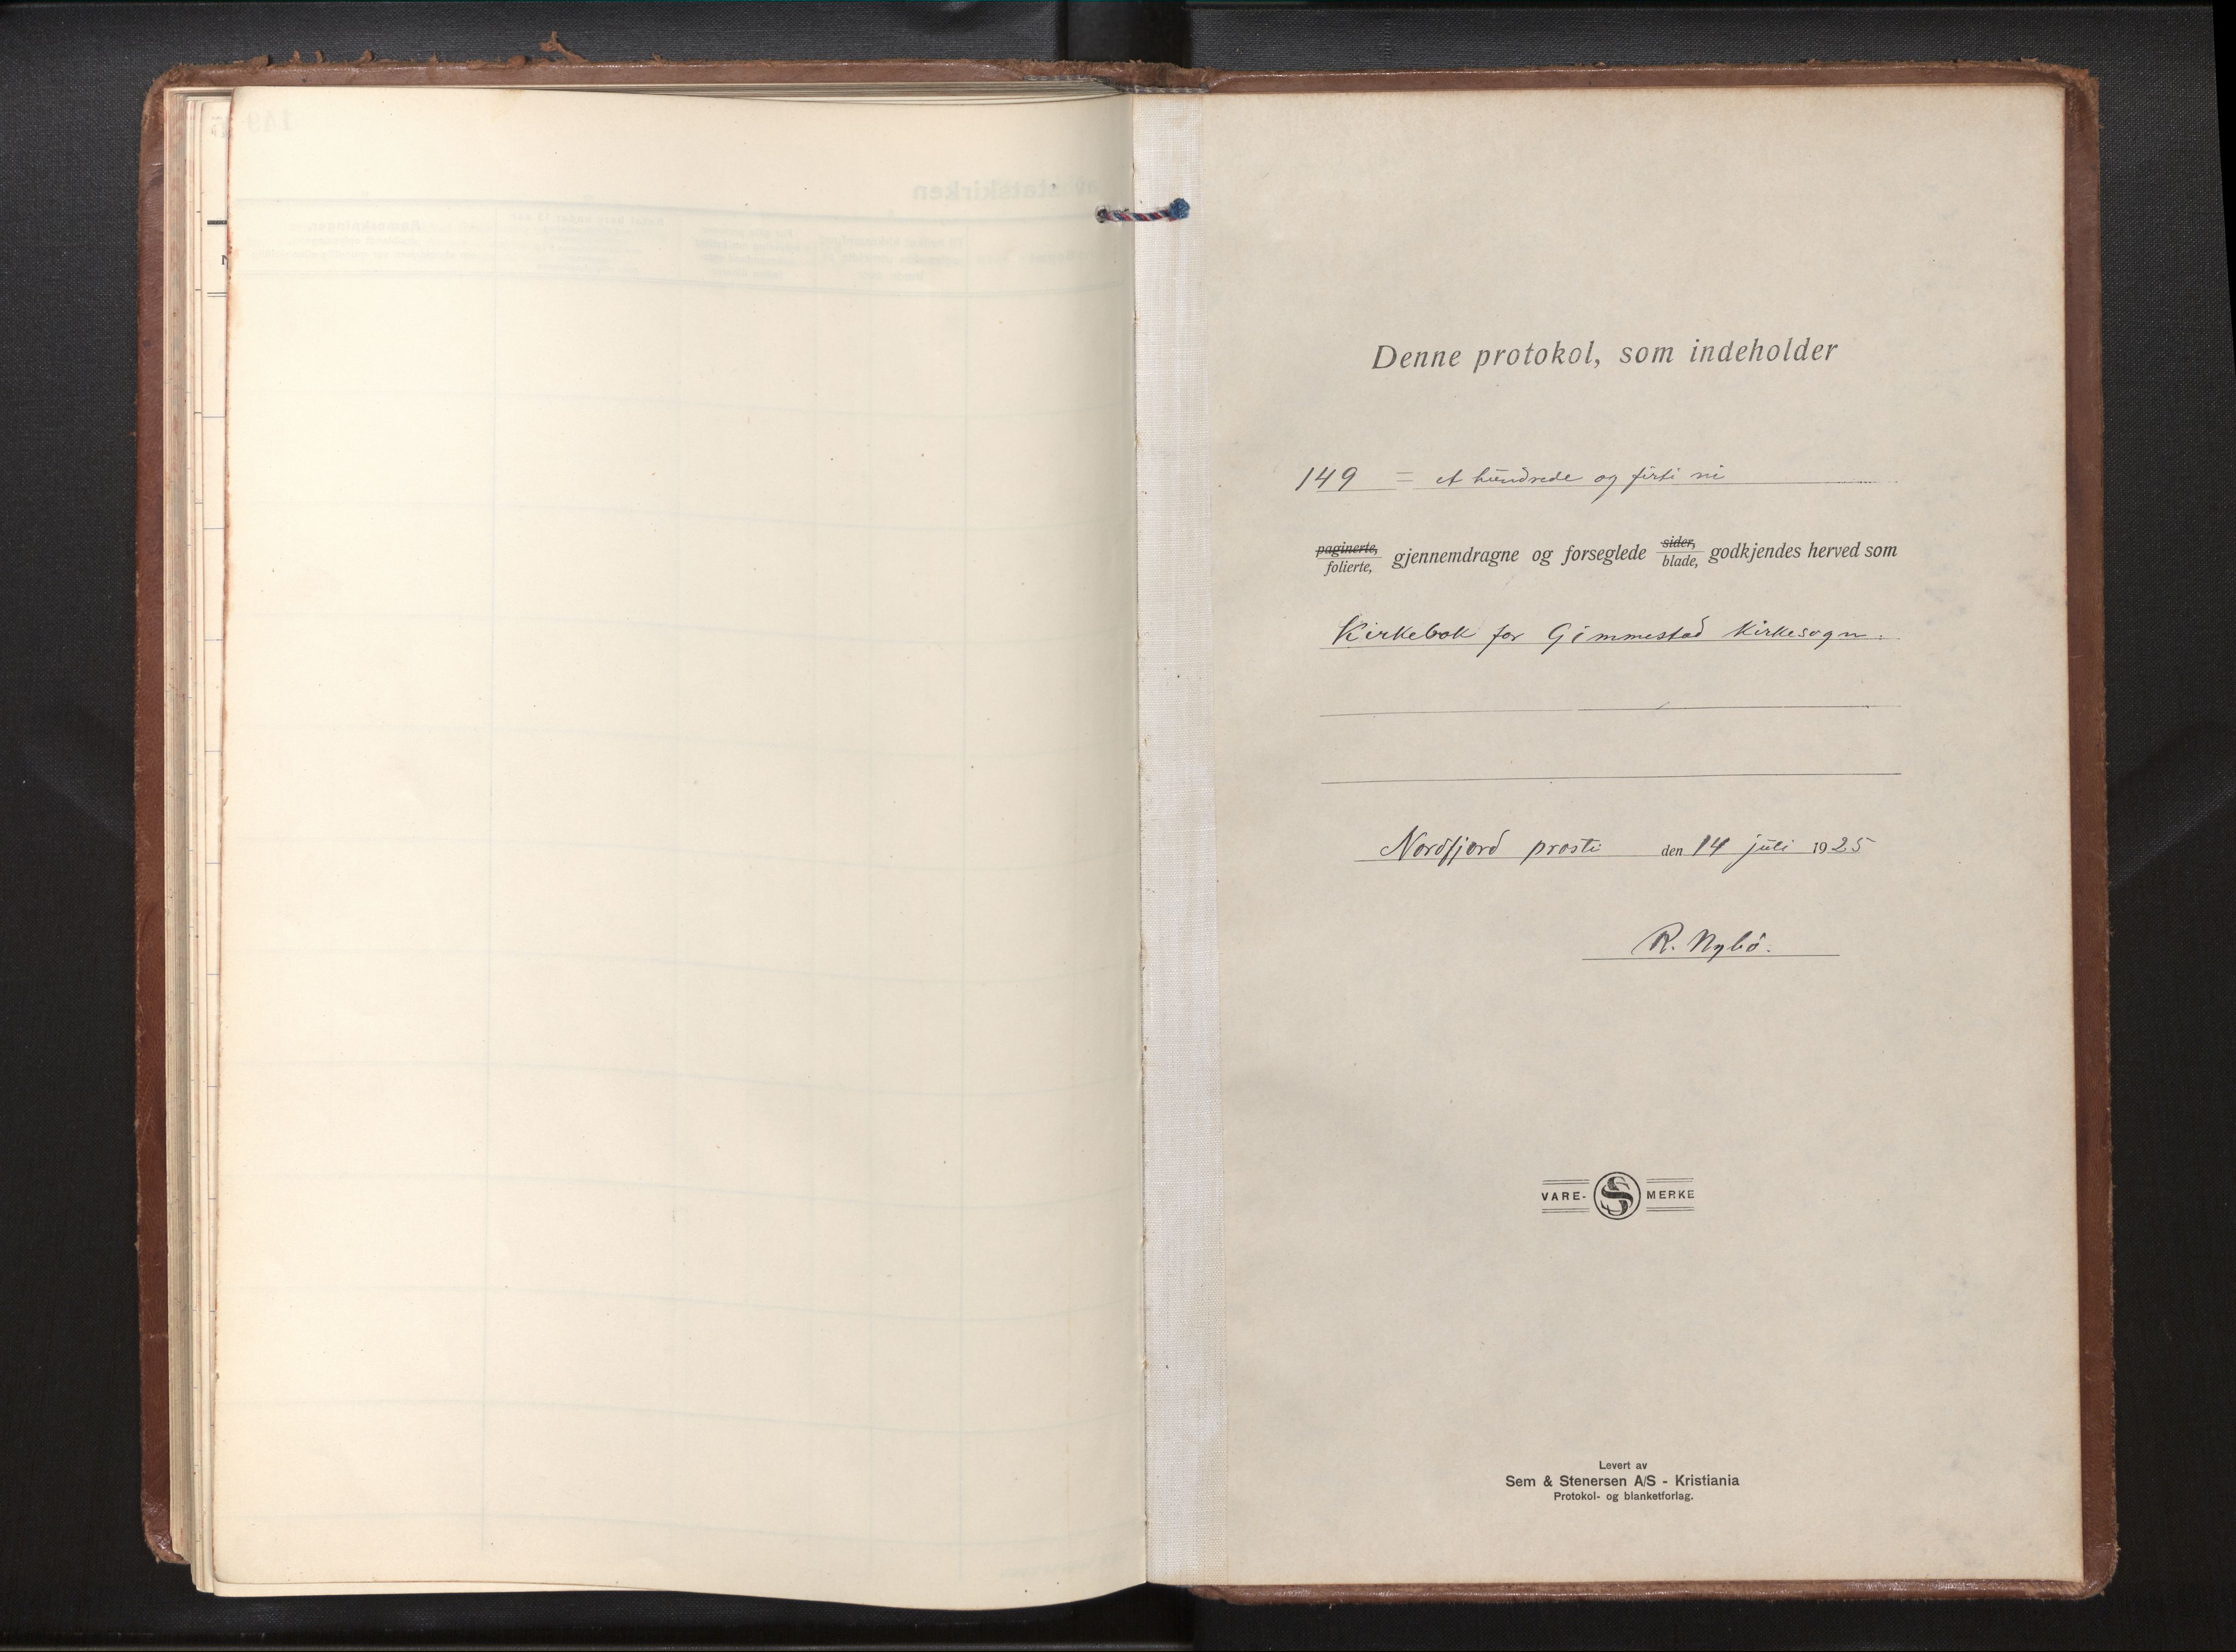 149
av statskirken
Anmerkninger.
Denne protokol, som indeholder
149 = et hundrede og førti ni
paginerte, folierte, gjennemdragne og forseglede sider, blade, godkjendes herved som
Kirkebok for Gimmestad Kirkesogn.
Nordfjord prosti den 14 juli 1925
R. Nybö.
VARE- S MERKE
Levert av
Sem & Stenersen A/S - Kristiania
Protokol- og blanketforlag.